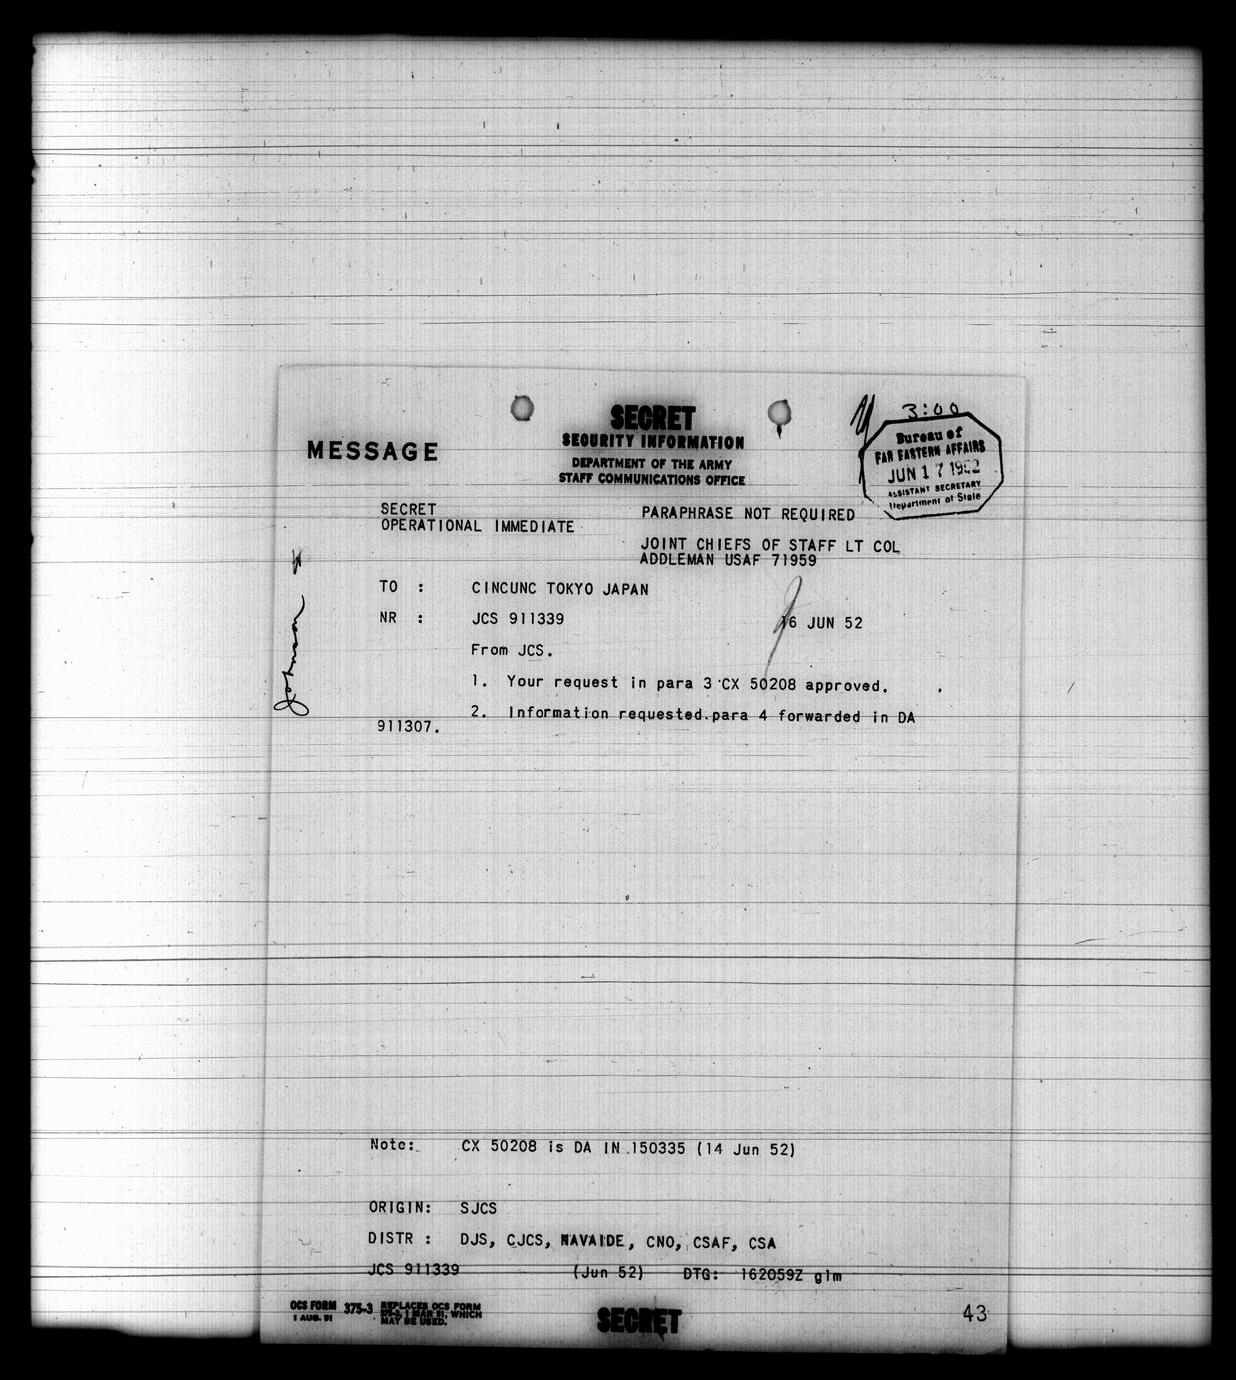 3:00
SECRET
SECURITY INFORMATION
MESSAGE
DEPARTMENT OF THE ARMY
STAFF COMMUNICATIONS OFFICE
Bureau of
FAR EASTERN AFFAIRS
JUN 17 1952
ASSISTANT SECRETARY
Department of State
SECRET
OPERATIONAL IMMEDIATE
PARAPHRASE NOT REQUIRED
JOINT CHIEFS OF STAFF LT COL
ADDLEMAN USAF 71959
TO : CINCUNC TOKYO JAPAN
NR : JCS 911339 16 JUN 52
From JCS.
1. Your request in para 3 CX 50208 approved.
2. Information requested para 4 forwarded in DA
911307.
Johnson
Note: CX 50208 is DA IN 150335 (14 Jun 52)
ORIGIN: SJCS
DISTR : DJS, CJCS, NAVAIDE, CNO, CSAF, CSA
JCS 911339 (Jun 52) DTG: 162059Z glm
OCS FORM 375-3 REPLACES OCS FORM
1 AUG. 51 375-3, 1 MAR 51, WHICH
MAY BE USED.
SECRET
43